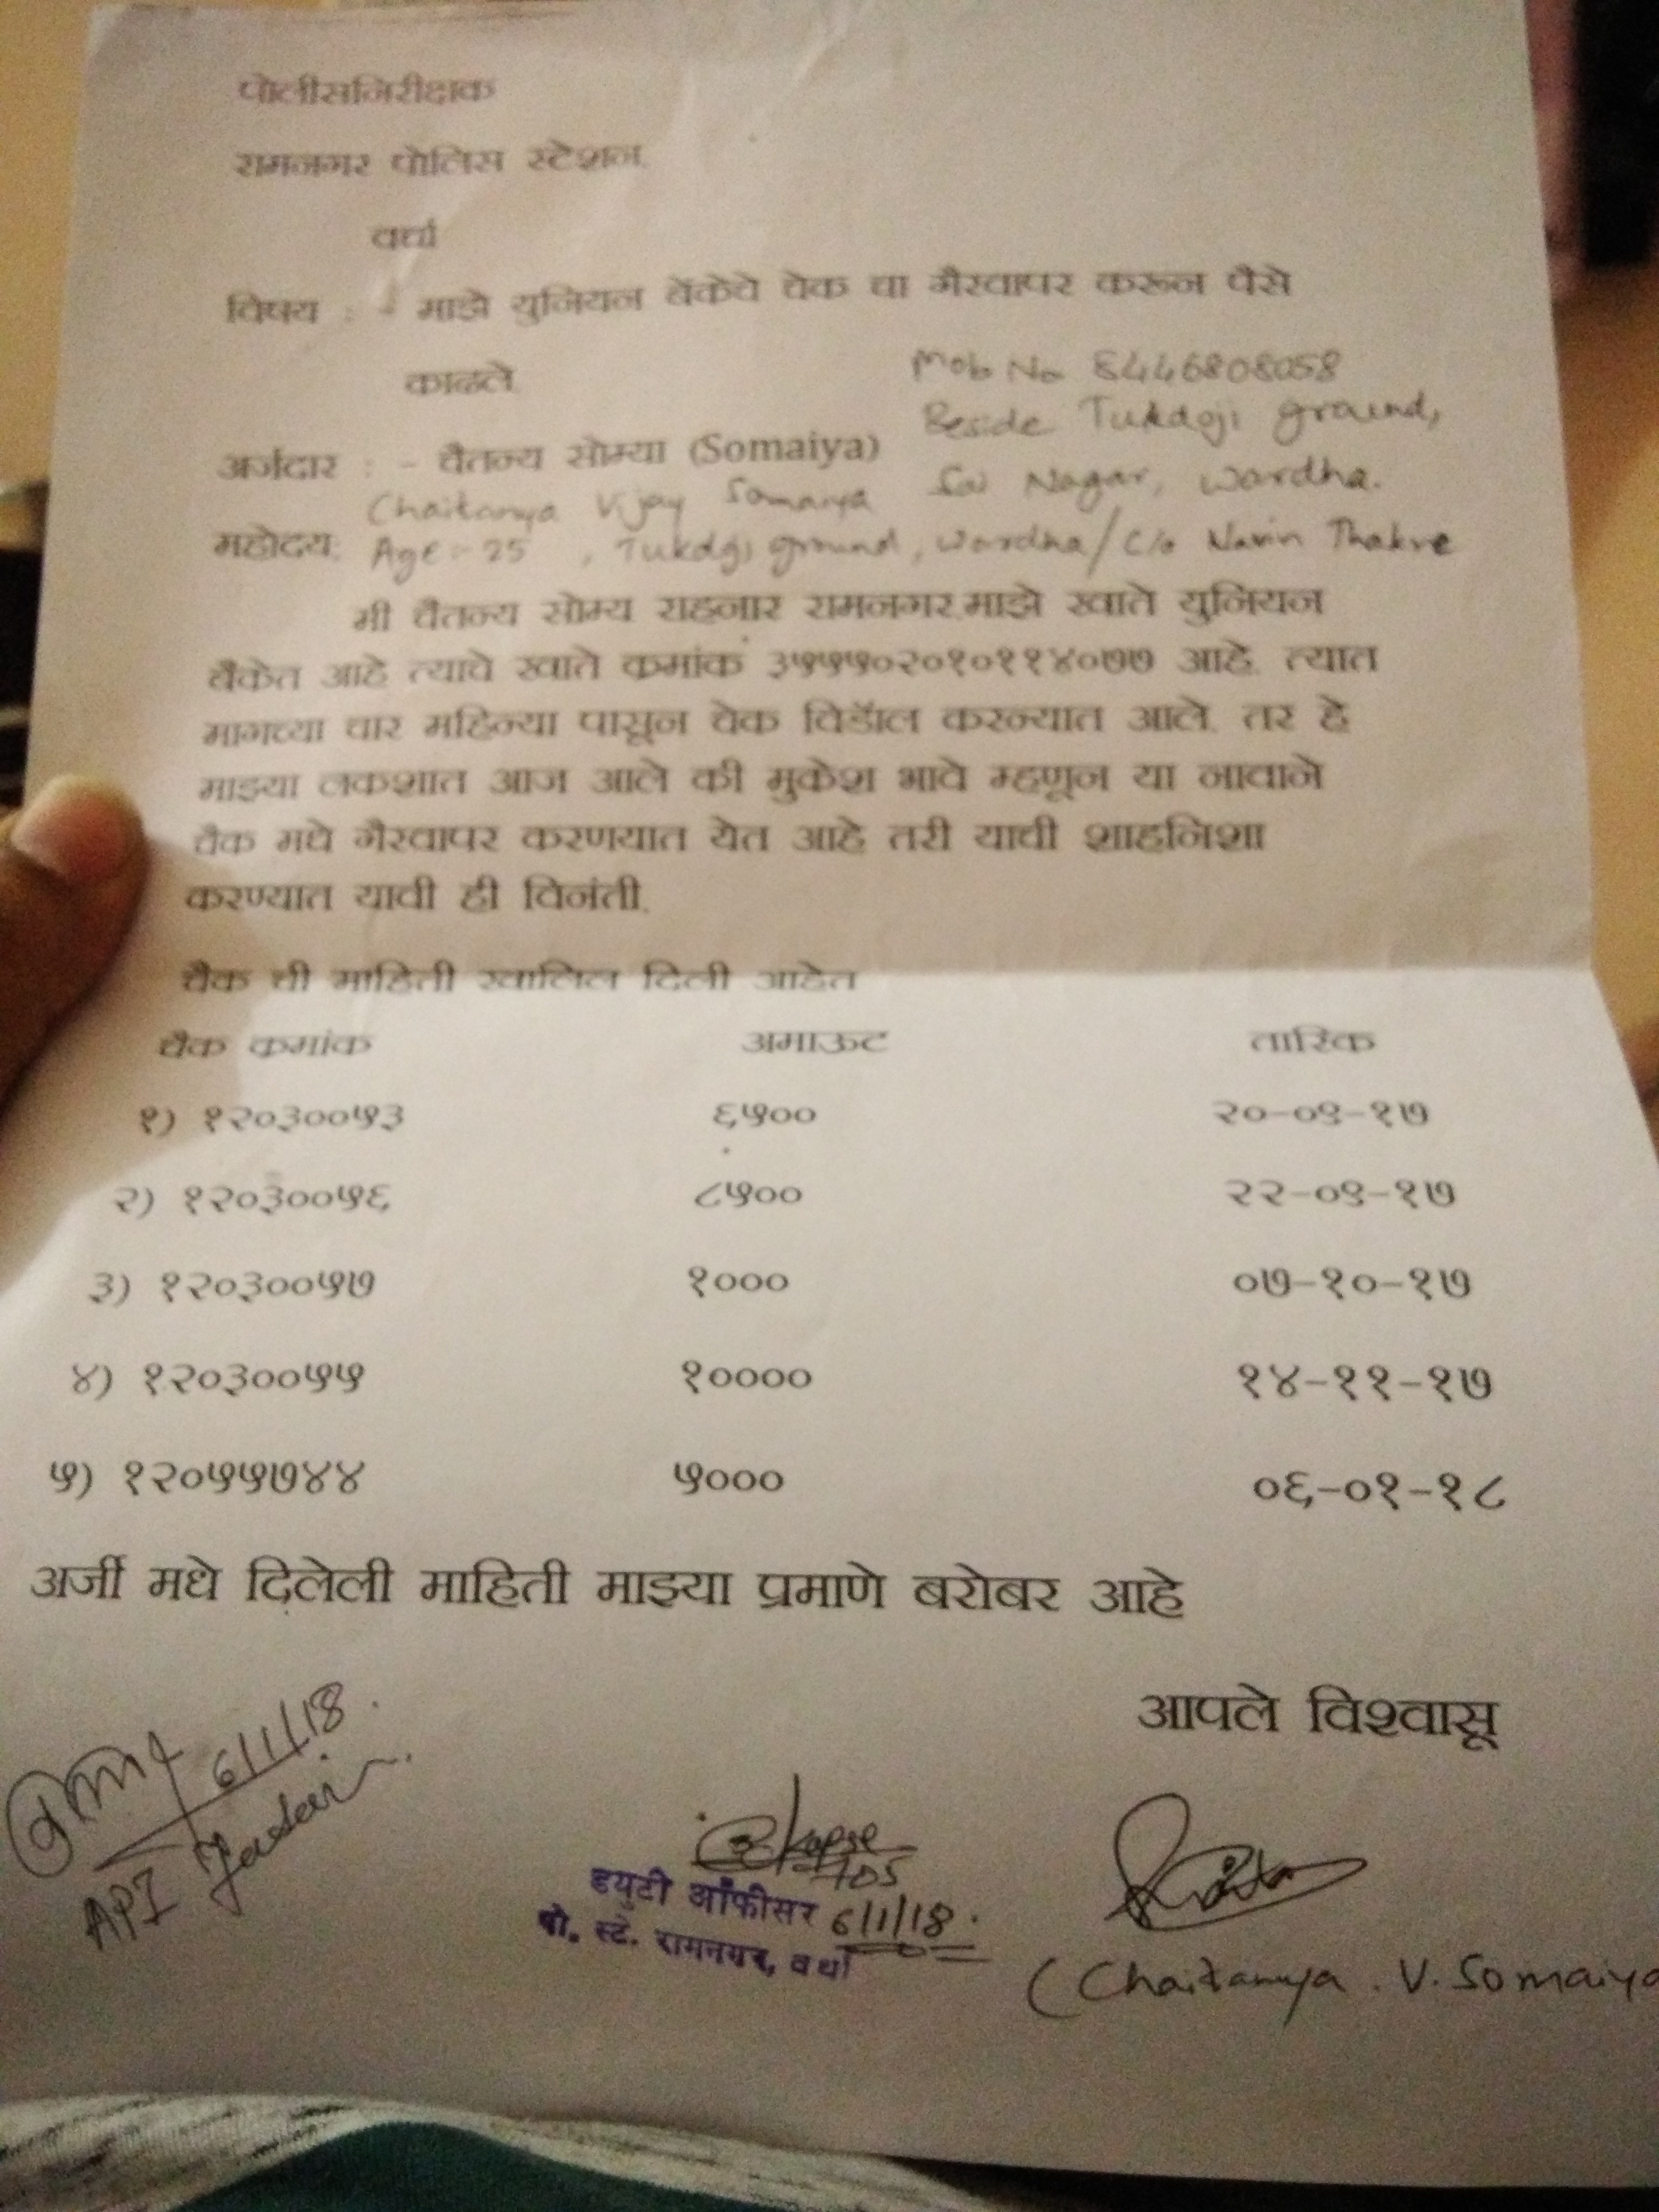 पोलीसनिरीक्षक
रामनगर पोलिस स्टेशन.
वर्धा
विषय : - माझे युनियन बॅकेचे चेक चा गैरवापर करून पैसे
काढले.
Mob No 8446808058
Beside Tukdoji ground,
Sai Nagar, Wardha.
अर्जदार : - चैतन्य सोम्या (Somaiya)
Chaitanya Vijay Somaiya
महोदय: Age:- 25 , Tukdoji ground, Wardha / C/o Navin Thakre
मी चैतन्य सोम्य राहनार रामनगर.माझे खाते युनियन
बॅकेत आहे त्याचे खाते कमांक ३५५५०२०१०११४०७७ आहे. त्यात
मागच्या चार महिन्या पासून चेक विडॅाल करन्यात आले. तर हे
माझ्या लकशात आज आले की मुकेश भावे म्हणून या नावाने
चैक मधे गैरवापर करणयात येत आहे तरी याची शाहनिशा
करण्यात यावी ही विनंती.
चैक ची माहिती खालिल दिली आहेत
चैक कमांक अमाऊट तारिक
१) १२०३००५३ ६५०० २०-०९-१७
२) १२०३००५६ ८५०० २२-०९-१७
३) १२०३००५७ १००० ०७-१०-१७
४) १२०३००५५ १०००० १४-११-१७
५) १२०५५७४४ ५००० ०६-०१-१८
अर्जी मधे दिलेली माहिती माझ्या प्रमाणे बरोबर आहे
आपले विश्वासू
6/1/18.
API
705
डयुटी ऑफीसर 6/1/18.
पो. स्टे. रामनगर, वर्धा
(Chaitanya . V. Somaiya